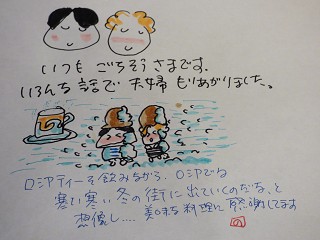 いつも ごちそうさまです。
いろんな 話で 夫婦 もりあがりました。
ロシアティーを飲みながら、ロシアでは
寒い寒い冬の街に出ていくのだな、と
想像し.... 美味な料理に感謝してます
の